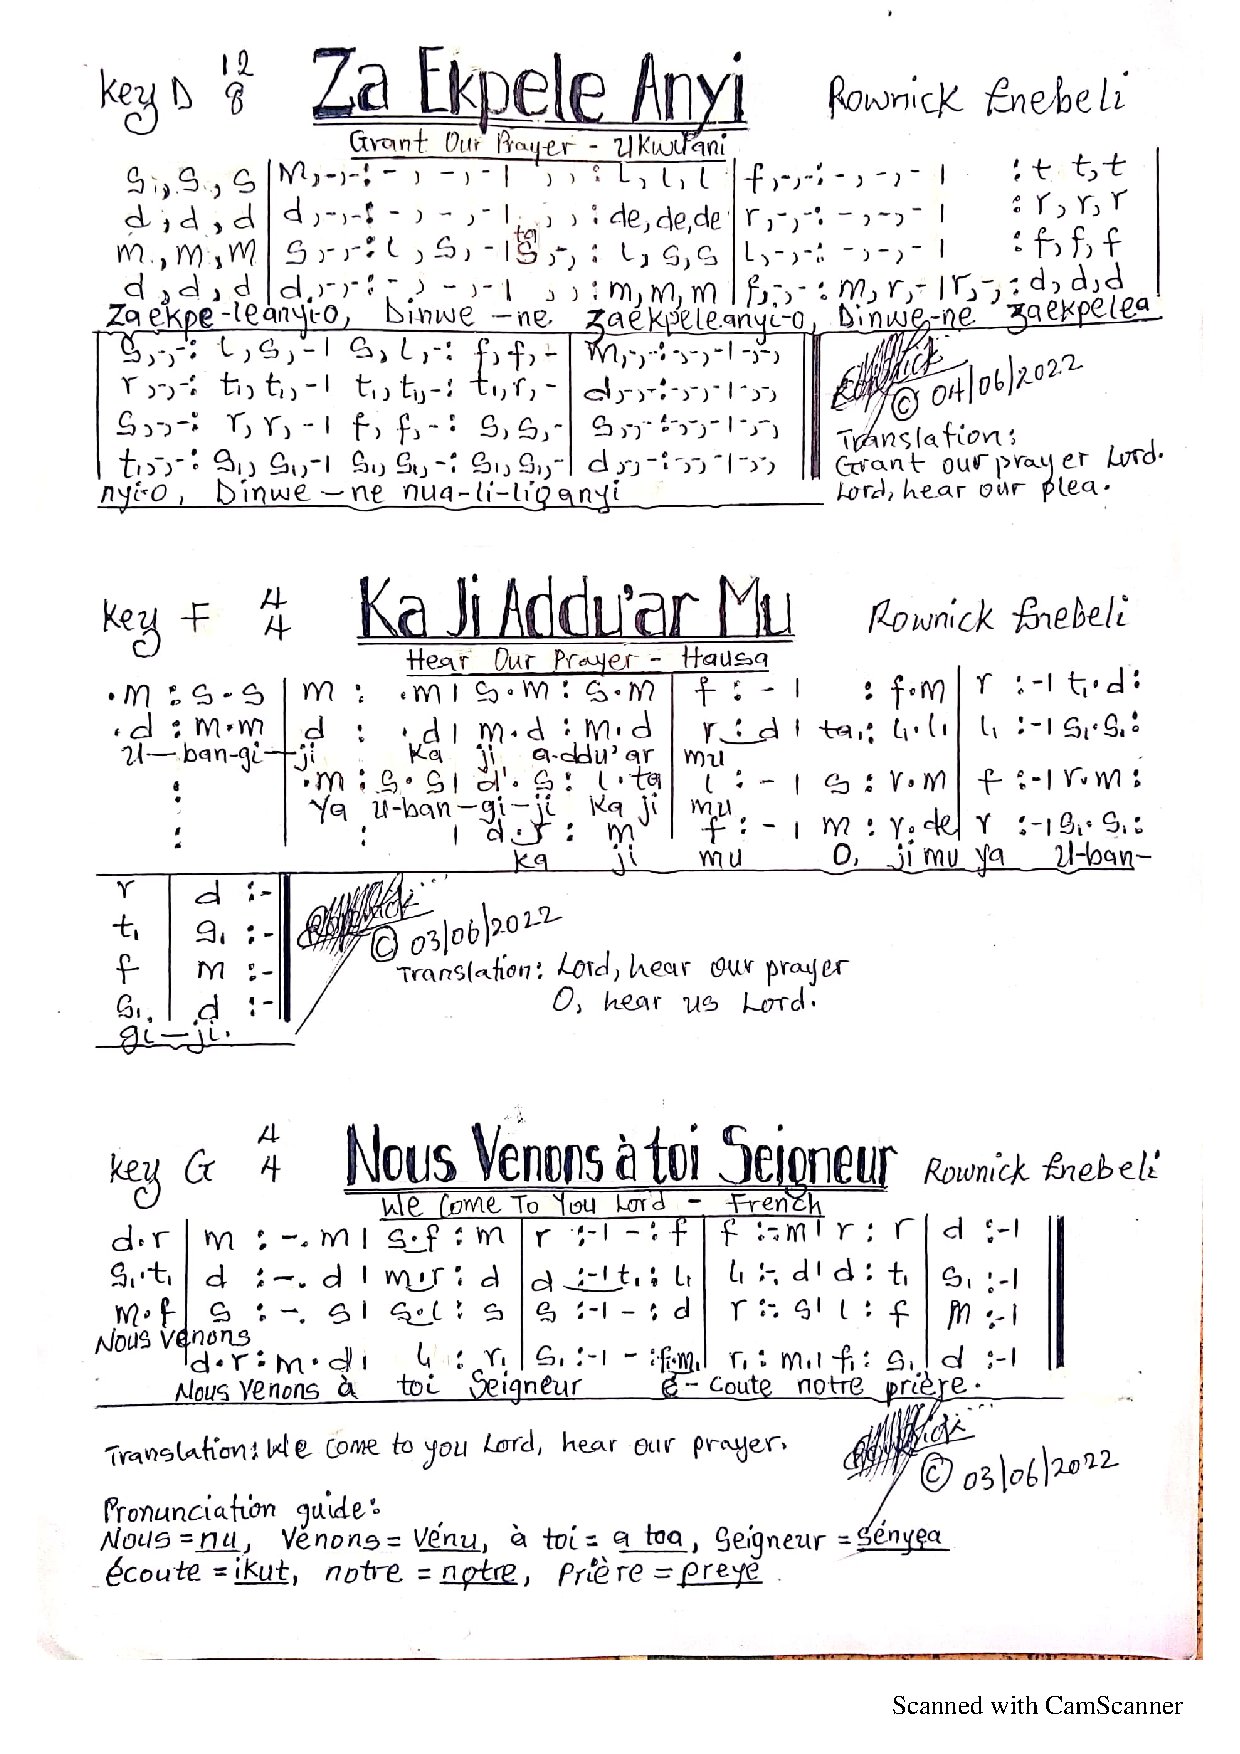 Key D 12/8 Za Ekpele Anyi Rownick Enebeli
Grant Our Prayer - Ukwuani
s₁,s₁,s | m,-,-:-,-,-| , , :l,l,l | f,-,-:-,-,-| :t t,t
d,d,d | d,-,-:-,-,-| , , :de,de,de | r,-,-:-,-,-| :r,r,r
m,m,m | s,-,-:l,s,-|ta s,-,:l,s,s | l,-,-:-,-,-| :f,f,f
d,d,d | d,-,-:-,-,-| , , :m,m,m | f,-,-:m,r,-|r,-,:d,d,d
Zaekpe-leanyi-o, Dinwe-ne zaekpeleanyi-o, Dinwe-ne zaekpelea
s,-,-:l,s,-| s,l,-:f,f,- | m,-,-:-,-,-|-,-,
r,-,-:t₁,t₁,-| t₁,t₁,-:t₁,r,- | d,-,-:-,-,-|-,-,
s,-,-:r,r,-| f,f,-:s,s,- | s,-,-:-,-,-|-,-,
t₁,-,-:s₁,s₁,-| s₁,s₁,-:s₁,s₁,- | d,-,-:-,-,-|-,-,
nyi-o, Dinwe-ne nua-li-liganyi
© 04/06/2022
Translation:
Grant our prayer Lord.
Lord, hear our plea.
Key F 4/4 Ka Ji Addu'ar Mu Rownick Enebeli
Hear Our Prayer - Hausa
.m:s.s | m : .m| s.m:s.m | f :-| :f.m | r :-| t₁.d:
.d:m.m | d : .d| m.d:m.d | r:d| ta₁:l₁.l₁ | l₁ :-| s₁.s₁:
U-ban-gi-ji Ka ji a-ddu'ar mu
: .m:s.s| d'.s:l.ta | l :-| s:r.m | f :-| r.m:
Ya u-ban-gi-ji Ka ji mu
: : | d.r:m | f :-| m:r.de | r :-| s₁.s₁:
ka ji mu O, ji mu ya U-ban-
r | d :-
t₁ | s₁ :-
f | m :-
s₁ | d :-
gi-ji.
© 03/06/2022
Translation: Lord, hear our prayer
O, hear us Lord.
Key G 4/4 Nous Venons à toi Seigneur Rownick Enebeli
We Come To You Lord - French
d.r | m :-.m| s.f:m | r :-|-:f | f :-.m| r:r | d :-|
s₁.t₁ | d :-.d| m.r:d | d :-|t₁:l₁ | l₁:-.d| d:t₁ | s₁ :-|
m.f | s :-.s| s.l:s | s :-|-:d | r:-.s| l:f | m :-|
Nous venons
d.r:m.d| l₁:r₁ | s₁:-|-:f₁.m₁ | r₁:m₁| f₁:s₁ | d :-|
Nous venons à toi Seigneur é-coute notre prière.
Translation: We come to you Lord, hear our prayer.
© 03/06/2022
Pronunciation guide:
Nous = nu, Venons = venu, à toi = a toa, Seigneur = sényea
écoute = ikut, notre = notre, Prière = preyé
Scanned with CamScanner